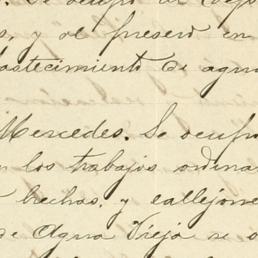 se ocupó al
s, y se preseró en
bastecimiento de agua
Mercedes. Se ocupó
n los trabajos ordina
brechas, y callejone
de Agua Vieja se o